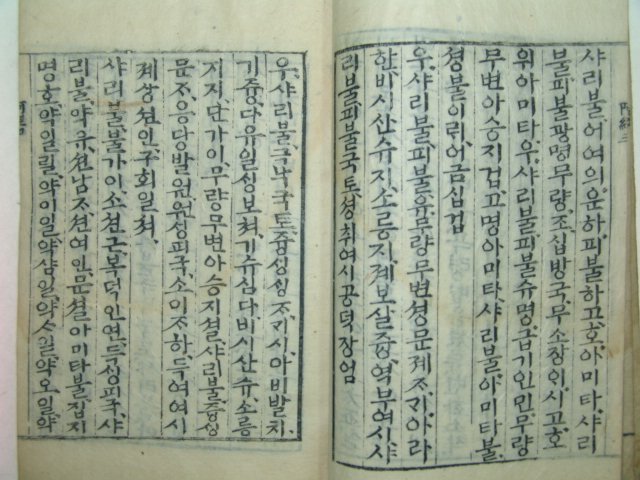 샤리불어여의운하피불하고호아미타샤리
불피불광명무량조십방국무소장ᄋᆡ시고호
위아미타우샤리불피불슈명급기인민무량
무변아승지겁고명아미타샤리불아미타불
셩불이ᄅᆡ어금십겁
우샤리불피불유무량무변셩문뎨ᄌᆞᄀᆡ아라
한비시산슈지소릉지졔보살즁역부여시샤
리불피불국토셩취여시공덕장엄
우샤리불극낙국토즁ᄉᆡᆼᄉᆡᆼᄌᆞᄀᆡ시아비발치
기즁다유일ᄉᆡᆼ보쳐기슈심다비시산슈소릉
지지단가이무량무변아승지셜샤리불즁ᄉᆡᆼ
문ᄌᆞ응당발원원ᄉᆡᆼ피국소이ᄌᆞ하득여여시
졔상션인구회일쳐
샤리불불가이소션근복덕인연득ᄉᆡᆼ피국샤
리불약유션남ᄌᆞ션여인문셜아미타불집지
명호약일일약이일약삼일약ᄉᆞ일약오일약